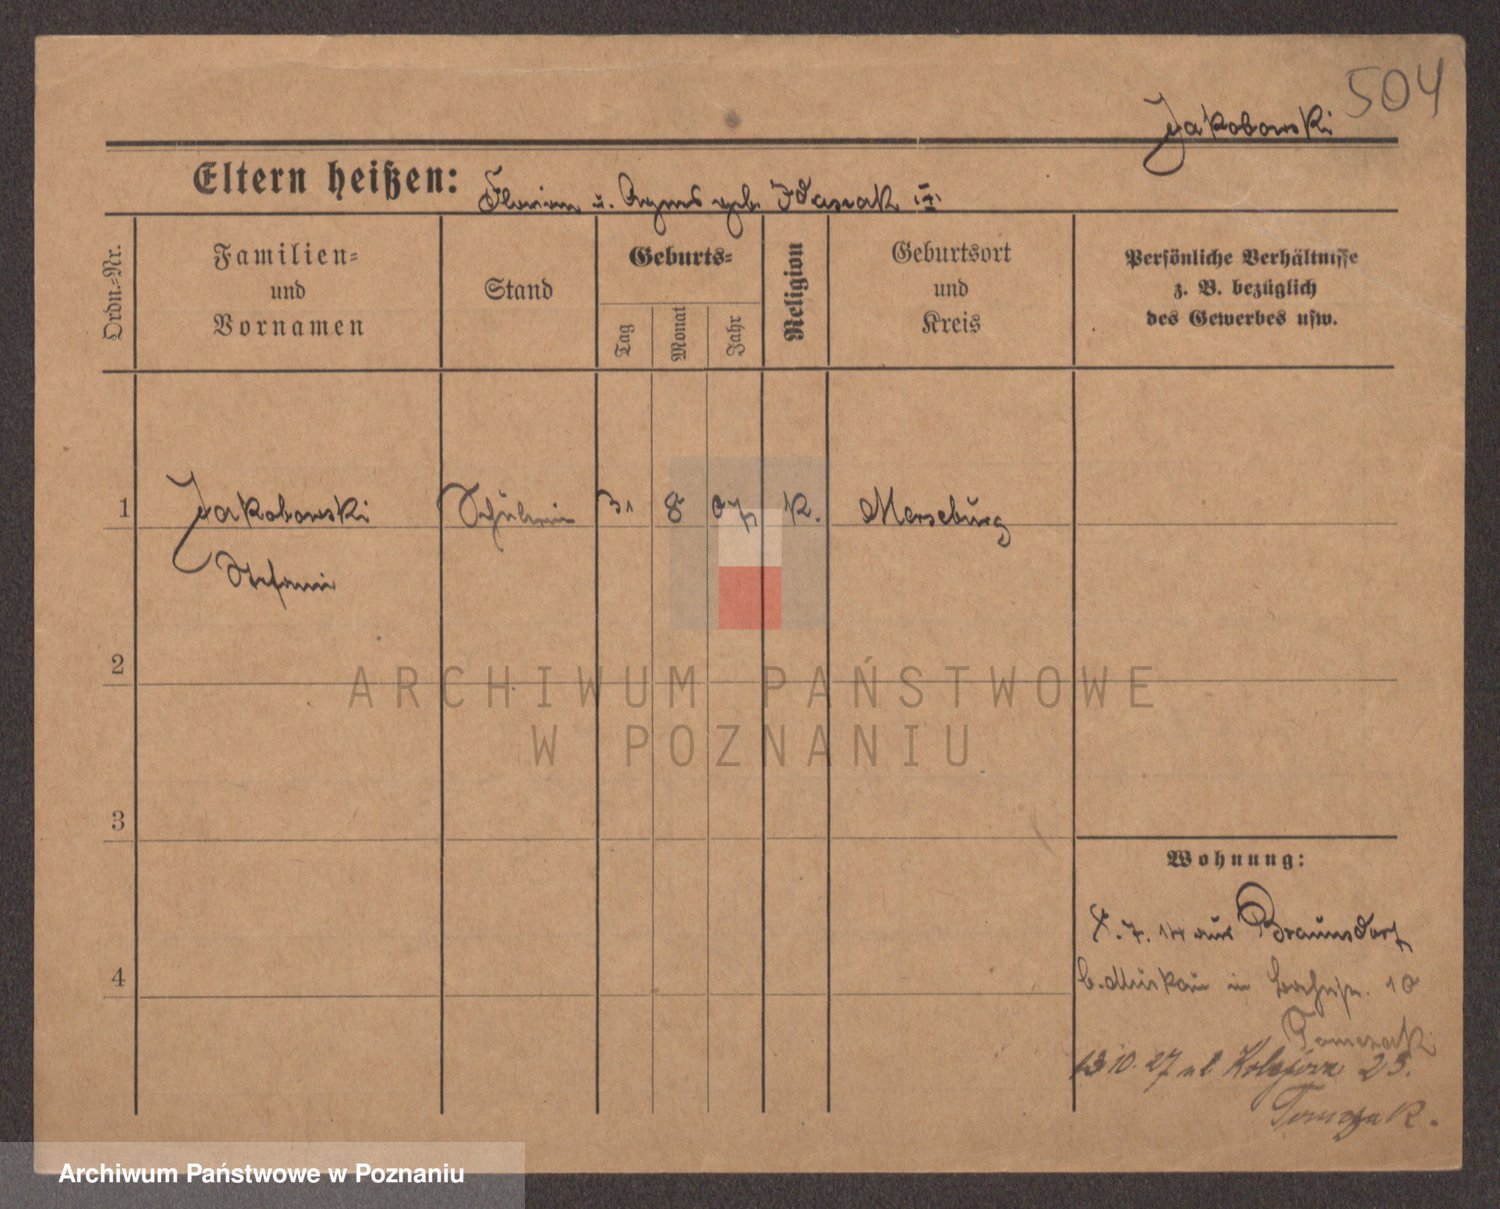 504
Jakobowski
Eltern heißen: Florian u. Agnes geb.
Ordn.-Nr.
Familien-
und
Vornamen
Stand
Geburts-
Tag
Monat
Jahr
Religion
Geburtsort
und
Kreis
Persönliche Verhältnisse
z. B. bezüglich
des Gewerbes usw.
1 Jakobowski Schülerin 31 8 07 k. Merseburg
Stefanie
2
3
4
Wohnung:
7. 14 aus Braunsdorf
b. Mürkau in 10
Tomczak
13 10. 27 ul Kolejowa 23.
Tomczak.
ARCHIWUM PAŃSTWOWE
W POZNANIU
Archiwum Państwowe w Poznaniu